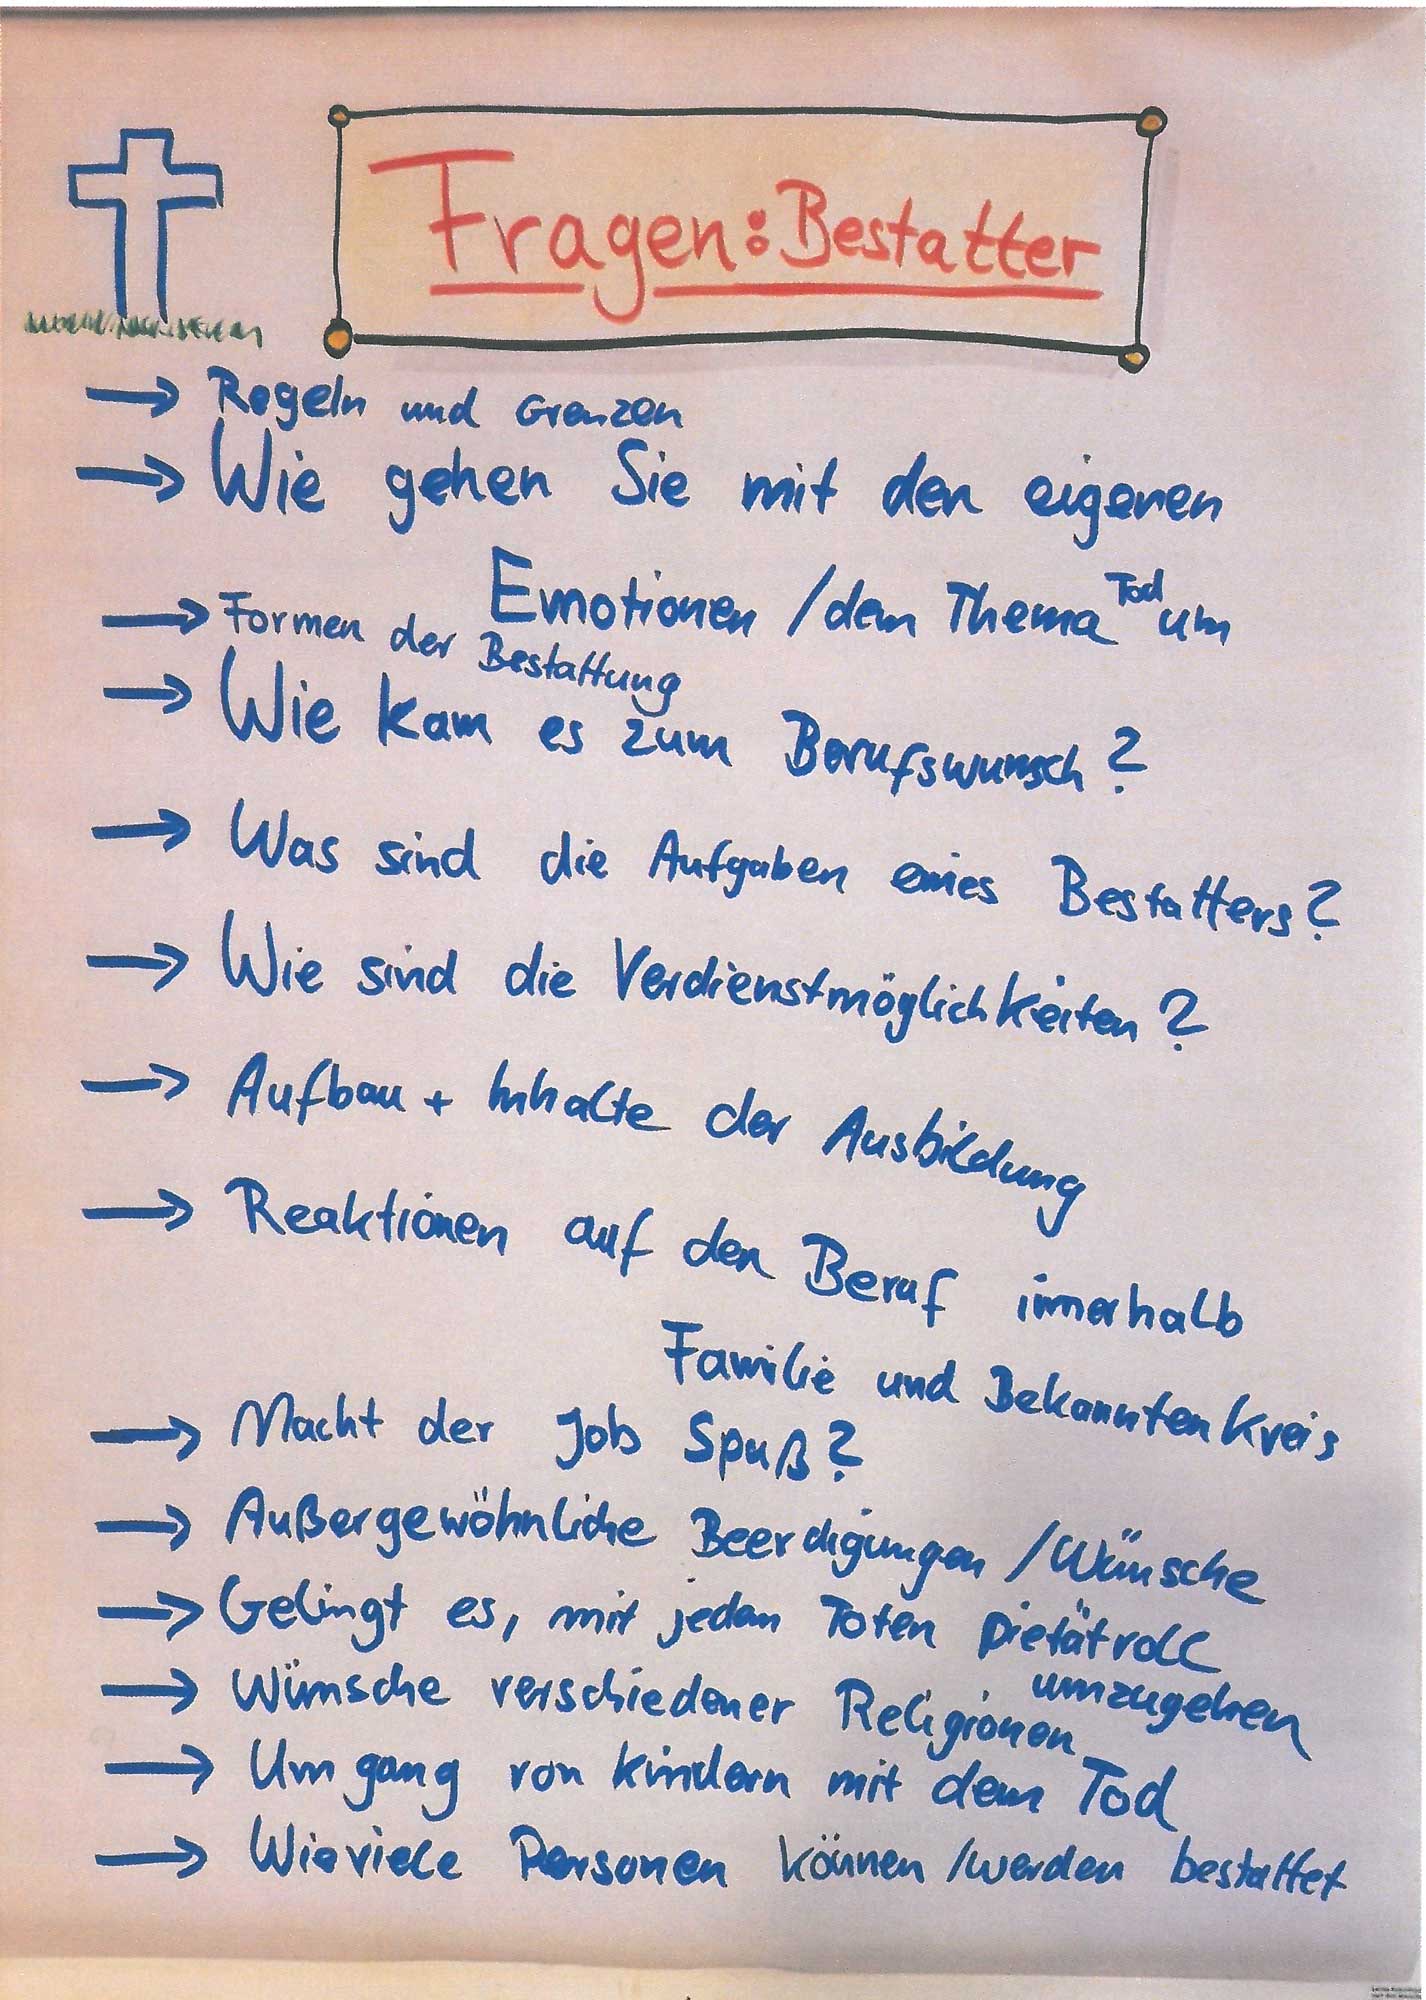 Fragen: Bestatter
→ Regeln und Grenzen
→ Wie gehen Sie mit den eigenen
Emotionen / dem Thema Tod um
→ Formen der Bestattung
→ Wie kam es zum Berufswunsch?
→ Was sind die Aufgaben eines Bestatters?
→ Wie sind die Verdienstmöglichkeiten?
→ Aufbau + Inhalte der Ausbildung
→ Reaktionen auf den Beruf innerhalb
Familie und Bekanntenkreis
→ Macht der Job Spaß?
→ Außergewöhnliche Beerdigungen / Wünsche
→ Gelingt es, mit jedem Toten pietätvoll
umzugehen
→ Wünsche verschiedener Religionen
→ Umgang von Kindern mit dem Tod
→ Wieviele Personen können / werden bestattet